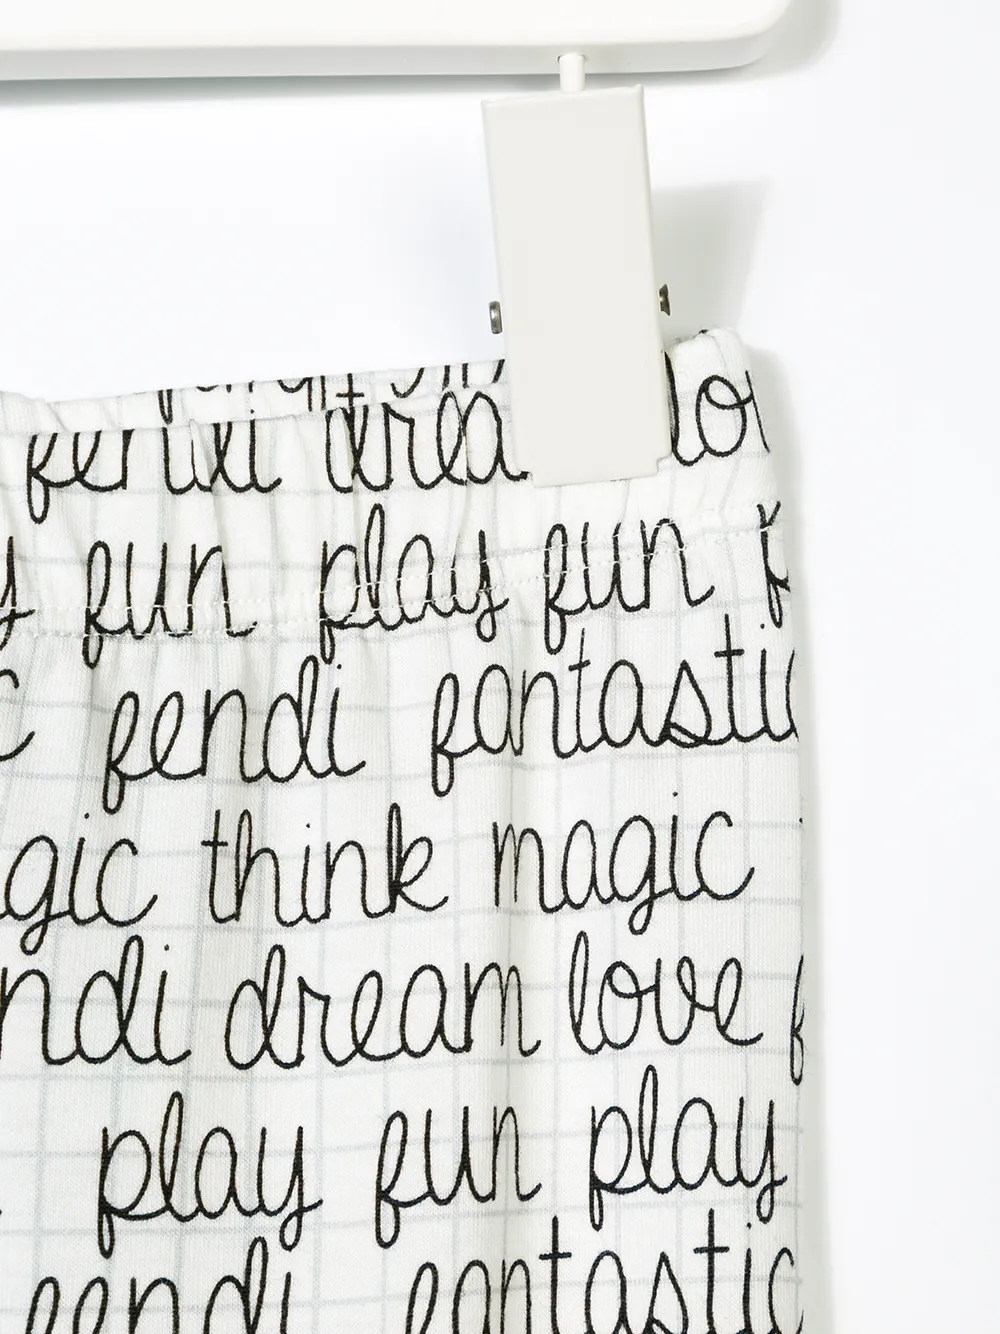 fendi drea lov
y fun play fun p
c fendi fantastic
agic think magic
ndi dream love f
play fun play
fendi fantastic